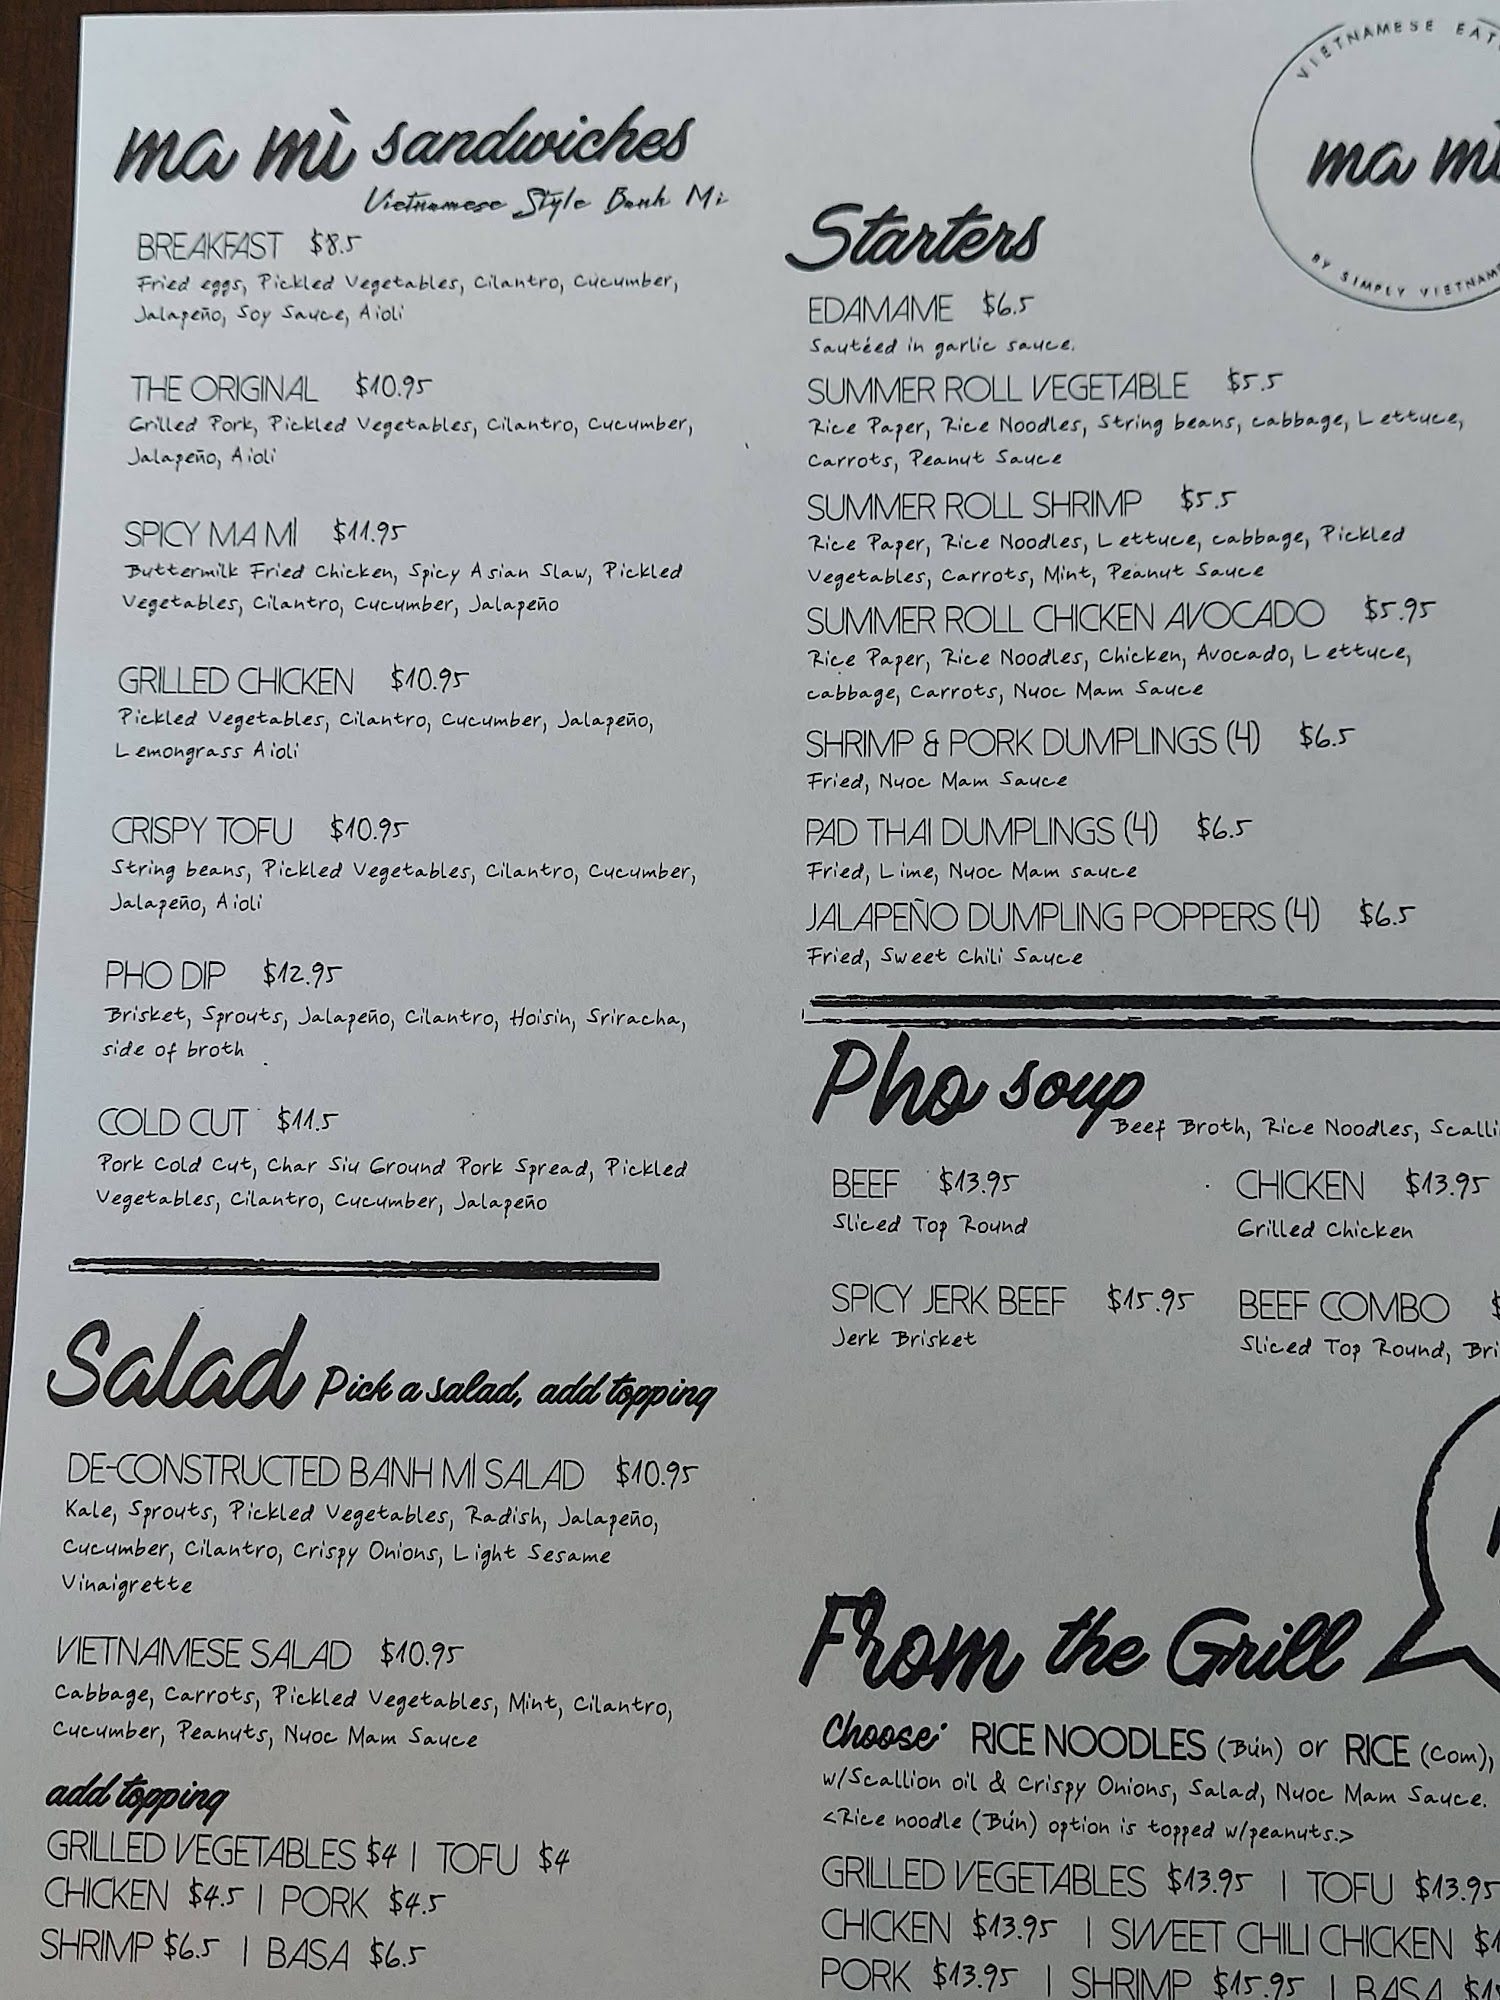 ma mì sandwiches
Vietnamese Style Banh Mi
BREAKFAST $8.5
Fried eggs, Pickled Vegetables, Cilantro, Cucumber,
Jalapeño, Soy Sauce, Aioli
THE ORIGINAL $10.95
Grilled Pork, Pickled Vegetables, Cilantro, Cucumber,
Jalapeño, Aioli
SPICY MA MÌ $11.95
Buttermilk Fried Chicken, Spicy Asian Slaw, Pickled
Vegetables, Cilantro, Cucumber, Jalapeño
GRILLED CHICKEN $10.95
Pickled Vegetables, Cilantro, Cucumber, Jalapeño,
Lemongrass Aioli
CRISPY TOFU $10.95
String beans, Pickled Vegetables, Cilantro, Cucumber,
Jalapeño, Aioli
PHO DIP $12.95
Brisket, Sprouts, Jalapeño, Cilantro, Hoisin, Sriracha,
side of broth
COLD CUT $11.5
Pork Cold Cut, Char Siu Ground Pork Spread, Pickled
Vegetables, Cilantro, Cucumber, Jalapeño
Salad Pick a salad, add topping
DE-CONSTRUCTED BANH MÌ SALAD $10.95
Kale, Sprouts, Pickled Vegetables, Radish, Jalapeño,
Cucumber, Cilantro, Crispy Onions, Light Sesame
Vinaigrette
VIETNAMESE SALAD $10.95
Cabbage, Carrots, Pickled Vegetables, Mint, Cilantro,
Cucumber, Peanuts, Nuoc Mam Sauce
add topping
GRILLED VEGETABLES $4 | TOFU $4
CHICKEN $4.5 | PORK $4.5
SHRIMP $6.5 | BASA $6.5
VIETNAMESE
ma mì
BY SIMPLY
Starters
EDAMAME $6.5
Sautéed in garlic sauce.
SUMMER ROLL VEGETABLE $5.5
Rice Paper, Rice Noodles, String beans, cabbage, Lettuce,
Carrots, Peanut Sauce
SUMMER ROLL SHRIMP $5.5
Rice Paper, Rice Noodles, Lettuce, cabbage, Pickled
Vegetables, Carrots, Mint, Peanut Sauce
SUMMER ROLL CHICKEN AVOCADO $5.95
Rice Paper, Rice Noodles, Chicken, Avocado, Lettuce,
cabbage, Carrots, Nuoc Mam Sauce
SHRIMP & PORK DUMPLINGS (4) $6.5
Fried, Nuoc Mam Sauce
PAD THAI DUMPLINGS (4) $6.5
Fried, Lime, Nuoc Mam sauce
JALAPEÑO DUMPLING POPPERS (4) $6.5
Fried, Sweet Chili Sauce
Pho soup
Beef Broth, Rice Noodles,
BEEF $13.95 CHICKEN $13.95
Sliced Top Round Grilled Chicken
SPICY JERK BEEF $15.95 BEEF COMBO
Jerk Brisket Sliced Top Round,
From the Grill
Choose: RICE NOODLES (Bún) or RICE (Com),
w/Scallion oil & Crispy Onions, Salad, Nuoc Mam Sauce.
<Rice noodle (Bún) option is topped w/peanuts.>
GRILLED VEGETABLES $13.95 | TOFU $13.95
CHICKEN $13.95 | SWEET CHILI CHICKEN
PORK $13.95 | SHRIMP $15.95 | BASA